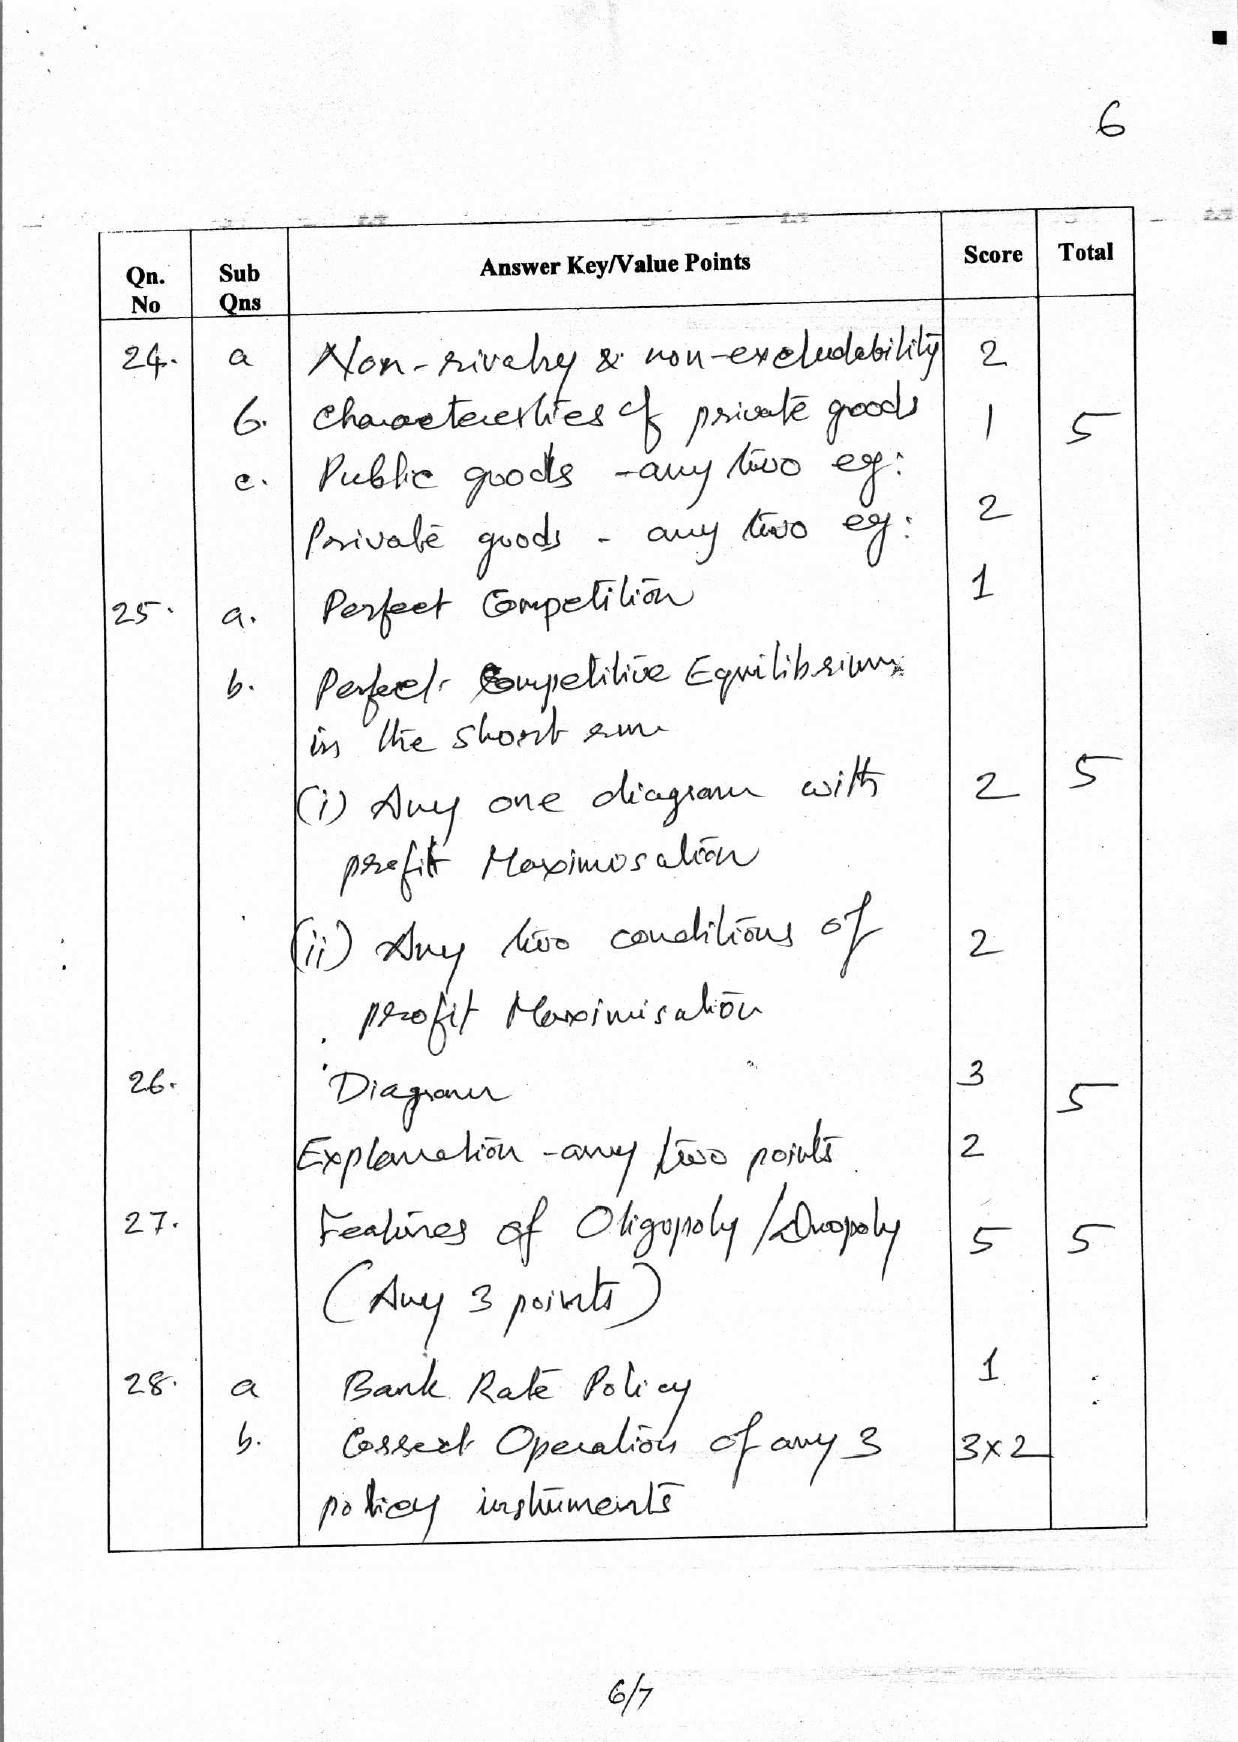 6
Qn. No Sub Qns Answer Key/Value Points Score Total
24. a Non-rivalry & non-excludability 2
b. Characteristics of private goods 1 5
c. Public goods - any two eg:
Private goods - any two eg: 2
25. a. Perfect Competition 1
b. Perfect Competitive Equilibrium
in the short run
(i) Any one diagram with 2 5
profit Maximosation
(ii) Any two conditions of 2
profit Maximisation
26. Diagram 3 5
Explanation - any two points 2
27. Features of Oligopoly/Duopoly 5 5
(Any 3 points)
28. a Bank Rate Policy 1
b. Correct Operation of any 3 3x2
policy instuments
6/7